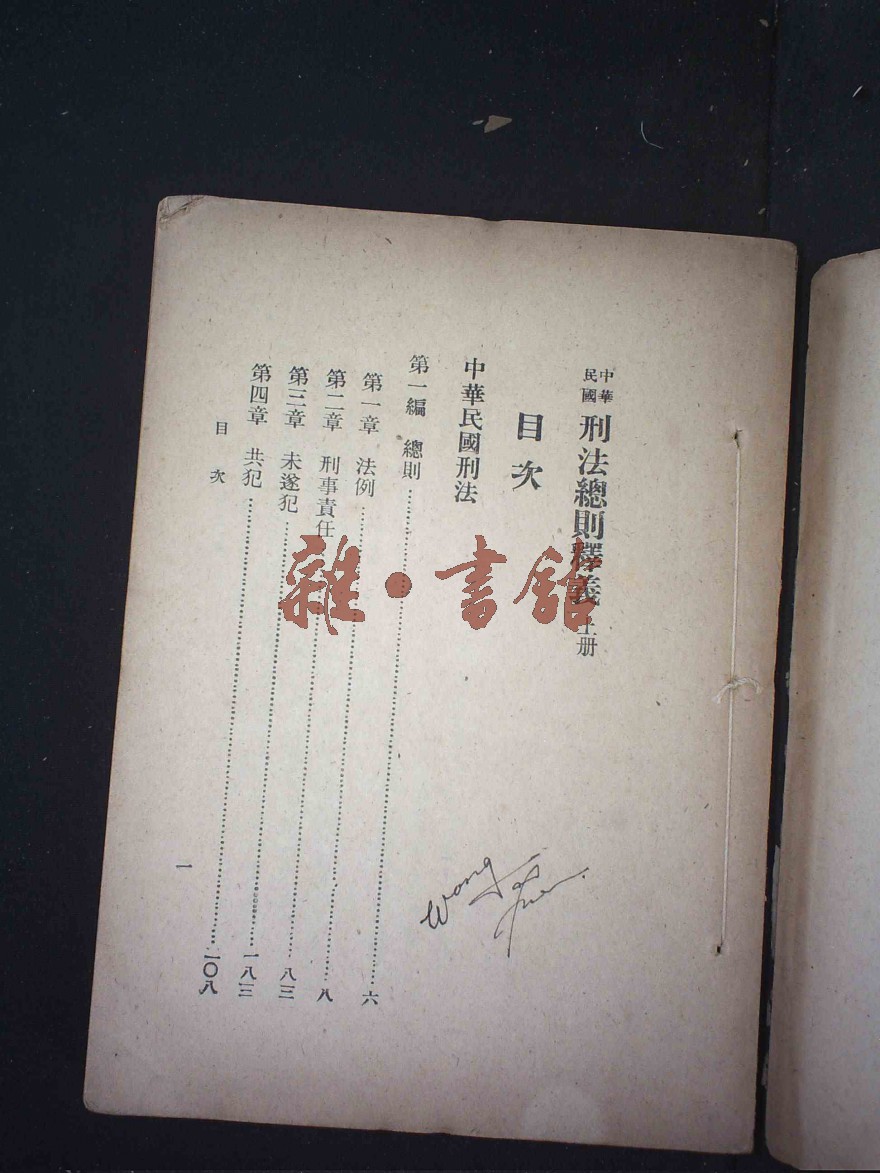 中華民國 刑法總則釋義 上册
目次
中華民國刑法
第一編 總則……六
第一章 法例……八
第二章 刑事責任……八三
第三章 未遂犯……一八三
第四章 共犯……二〇八
目次 一
雜·書館
Wong